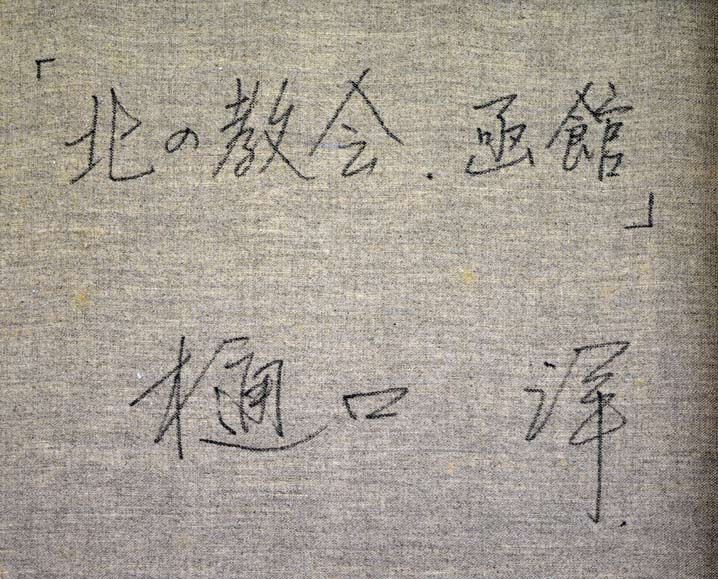 「北の教会.函館」
樋口 洋.